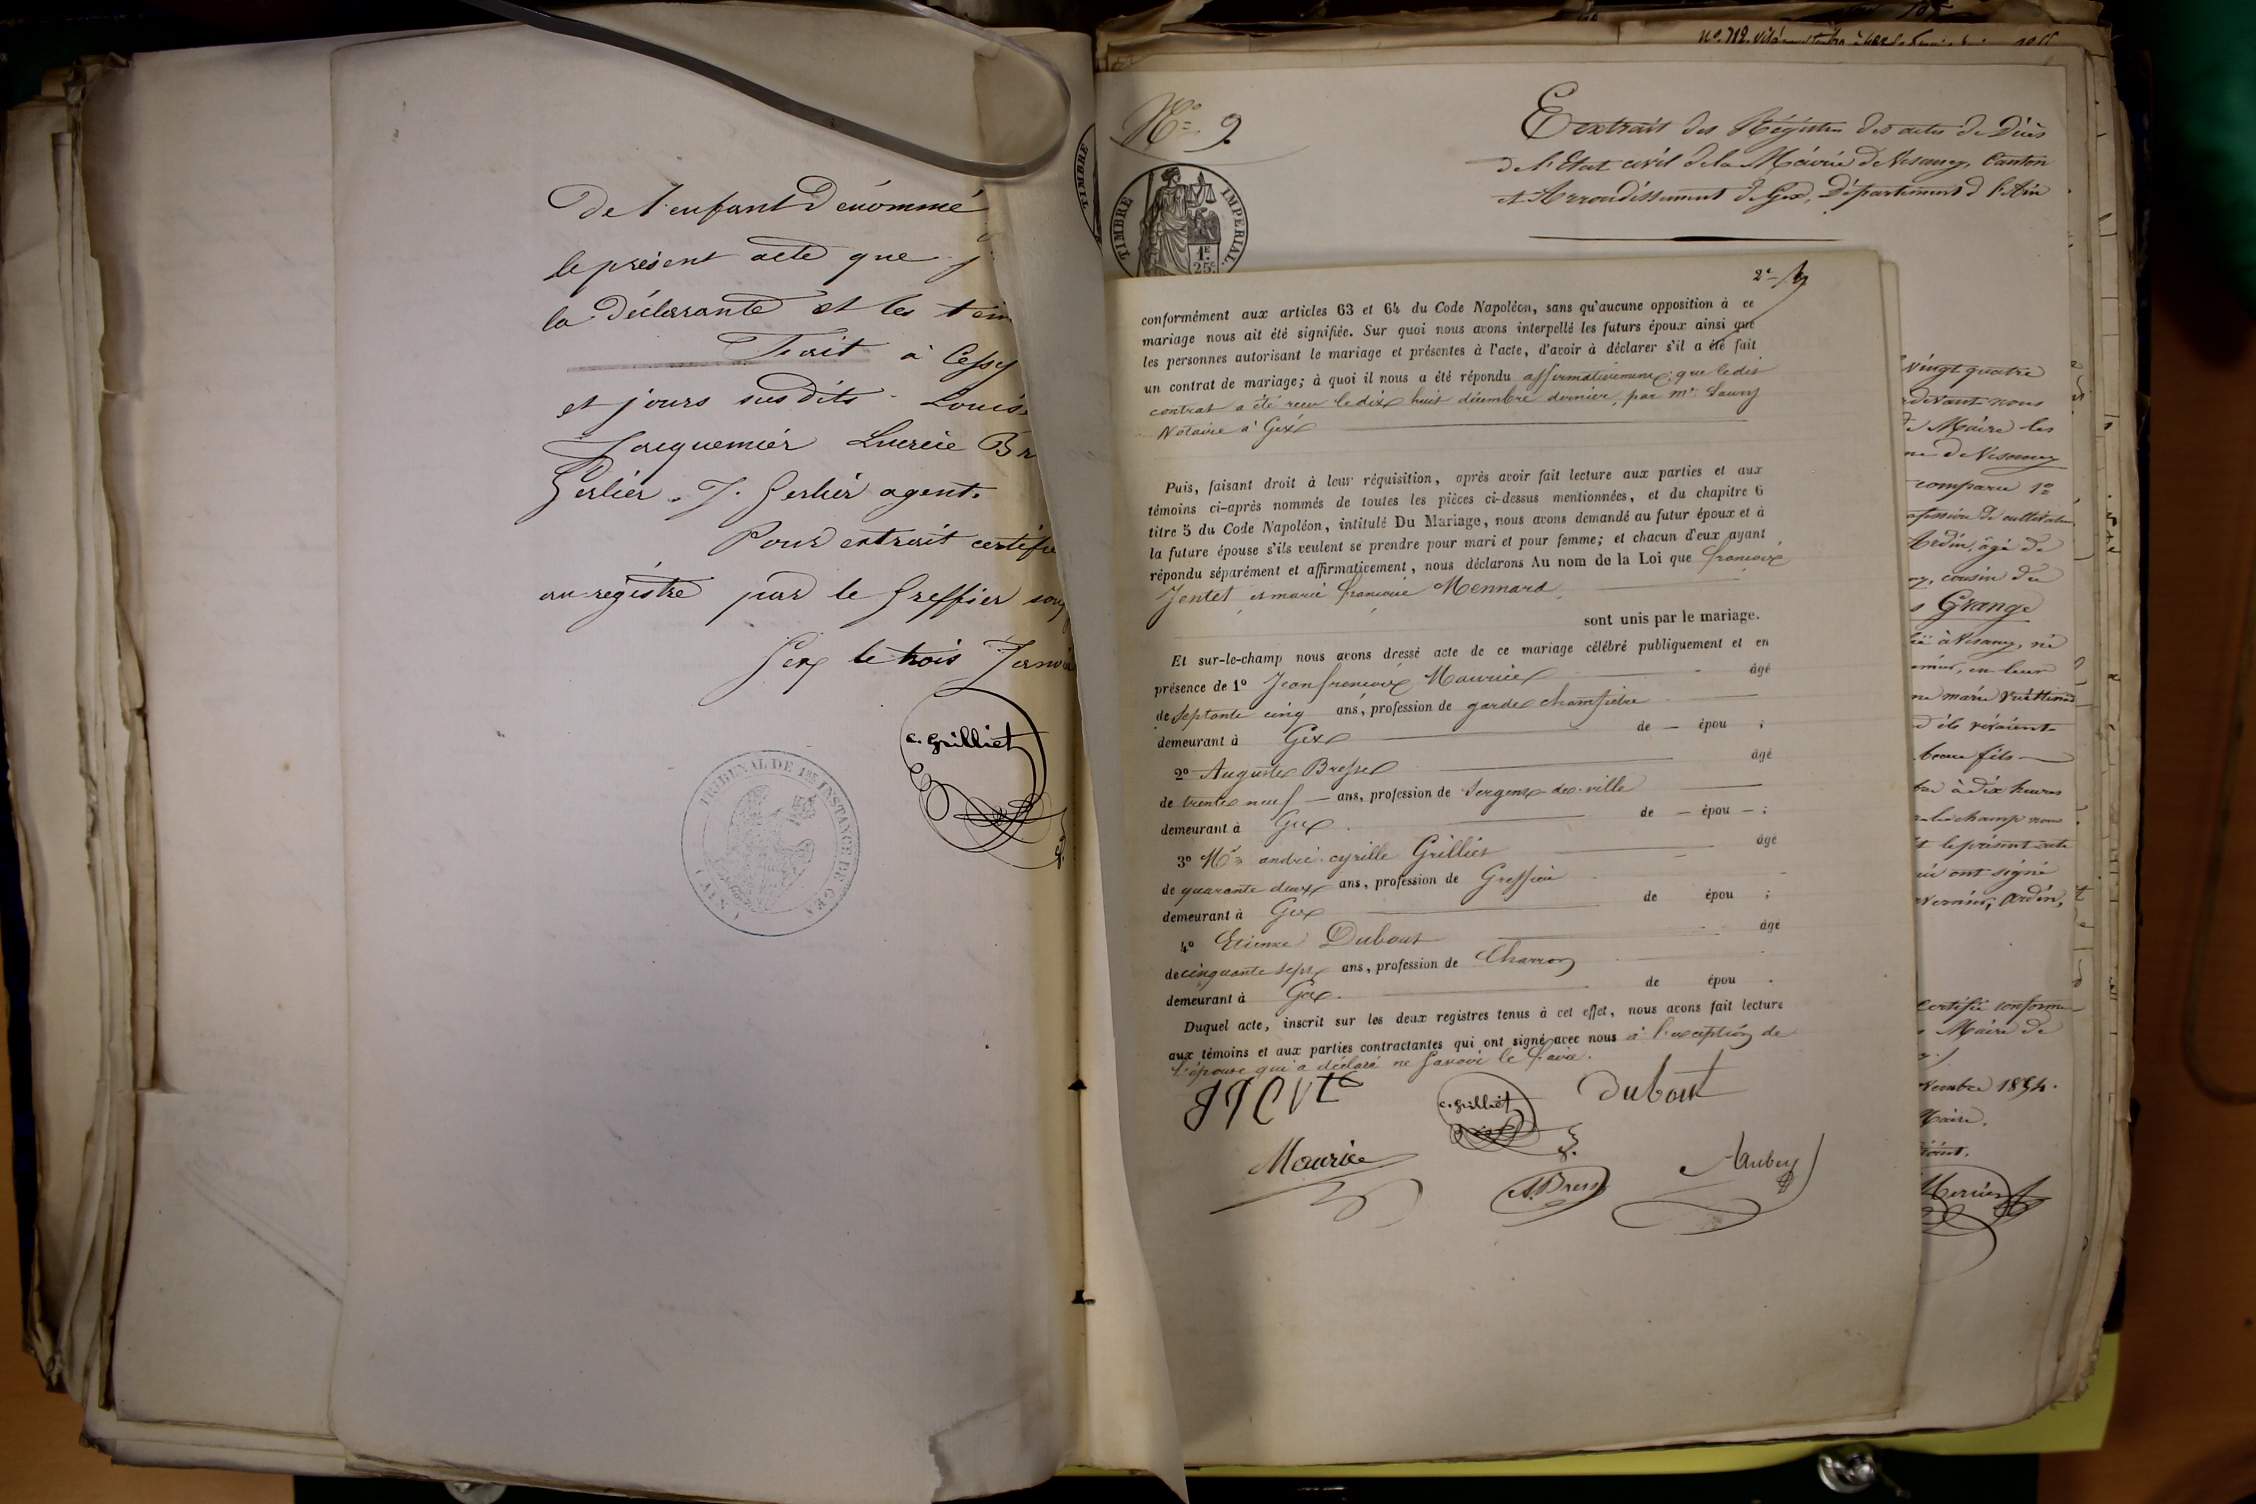 De l'enfant Dénommé
le présent acte que
la déclarante et les tém
Fait à Cessy
et jours susdits - Louis
Jacquemier Lucrèce Br
Gerlier . J. Gerlier agent.
Pour extrait certifié
au registre par le Greffier sous
Gex le trois Janvie
c. Grilliet
TRIBUNAL DE 1RE INSTANCE DE GEX
( AIN )
N° 9.
Extrait des Régistres des actes de Décès
de l'Etat civil de la Mairie de Vesancy, Canton
et Arrondissement de Gex, Département de l'Ain
TIMBRE IMPERIAL
1F
25c
2e
conformément aux articles 63 et 64 du Code Napoléon, sans qu'aucune opposition à ce
mariage nous ait été signifiée. Sur quoi nous avons interpellé les futurs époux ainsi que
les personnes autorisant le mariage et présentes à l'acte, d'avoir à déclarer s'il a été fait
un contrat de mariage; à quoi il nous a été répondu affirmativement, que ledit
contrat a été reçu le dix huit décembre dernier, par Me
Notaire à Gex
Puis, faisant droit à leur réquisition, après avoir fait lecture aux parties et aux
témoins ci-après nommés de toutes les pièces ci-dessus mentionnées, et du chapitre 6
titre 5 du Code Napoléon, intitulé Du Mariage, nous avons demandé au futur époux et à
la future épouse s'ils veulent se prendre pour mari et pour femme; et chacun d'eux ayant
répondu séparément et affirmativement, nous déclarons Au nom de la Loi que françois
Jentet et marie françoise Mennard
sont unis par le mariage.
Et sur-le-champ nous avons dressé acte de ce mariage célébré publiquement et en
présence de 1° Jean françois Maurice âgé
de septante cinq ans, profession de garde champêtre
demeurant à Gex de — épou ;
2° Auguste Bresse âgé
de trente neuf ans, profession de Sergent de ville
demeurant à Gex de — épou — ;
3° Me andré cyrille Grilliet âgé
de quarante deux ans, profession de Greffier
demeurant à Gex de épou ;
4° Etienne Dubout âgé
de cinquante sept ans, profession de Charron
demeurant à Gex. de épou .
Duquel acte, inscrit sur les deux registres tenus à cet effet, nous avons fait lecture
aux témoins et aux parties contractantes qui ont signé avec nous à l'exception de
l'épouse qui a déclaré ne savoir le faire.
c. Grilliet
Dubout
Maurice
A. Bress
Aubry
vingt quatre
devant nous
Maire les
de Vesancy
comparu 1°
profession de cultivateur
Ardin, âgé de
cousin du
Grange
à Vesancy, né
en leur
marie
ils vivaient
beau fils
à dix heures
le champ nous
le présent acte
ont signé
Ardin,
Certifié conforme
Maire de
vembre 1854.
Maire.
Mercier